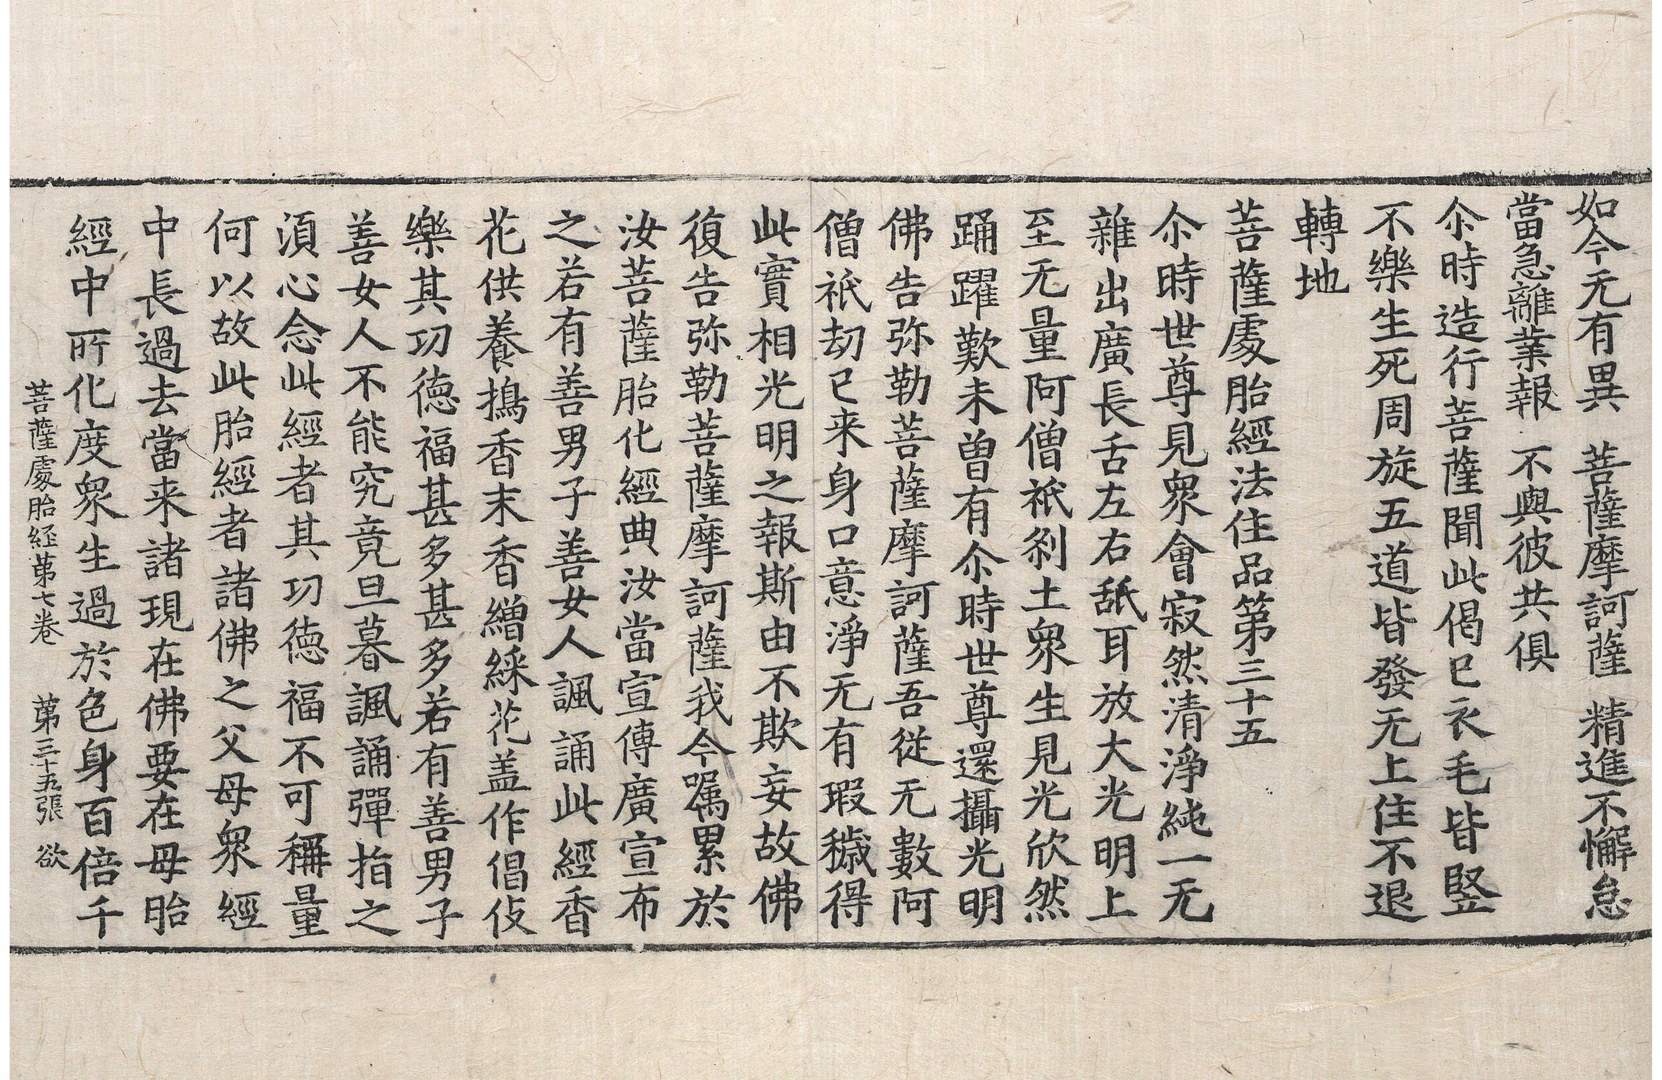 如今无有異 菩薩摩訶薩 精進不懈怠
當急離業報 不與彼共俱
尒時造行菩薩聞此偈已衣毛皆竪
不樂生死周旋五道皆發无上住不退
轉地
菩薩處胎經法住品第三十五
尒時世尊見衆會寂然清淨純一无
雜出廣長舌左右舐耳放大光明上
至无量阿僧祇刹土衆生見光欣然
踊躍歎未曾有尒時世尊還攝光明
佛告弥勒菩薩摩訶薩吾從无數阿
僧祇劫已来身口意淨无有瑕穢得
此實相光明之報斯由不欺妄故佛
復告弥勒菩薩摩訶薩我今囑累於
汝菩薩胎化經典汝當宣傳廣宣布
之若有善男子善女人諷誦此經香
花供養擣香末香繒綵花盖作倡伎
樂其功德福甚多甚多若有善男子
善女人不能究竟旦暮諷誦彈指之
湏心念此經者其功德福不可稱量
何以故此胎經者諸佛之父母衆經
中長過去當来諸現在佛要在母胎
經中所化度衆生過於色身百倍千
菩薩處胎經第七卷 第三十五張 欲